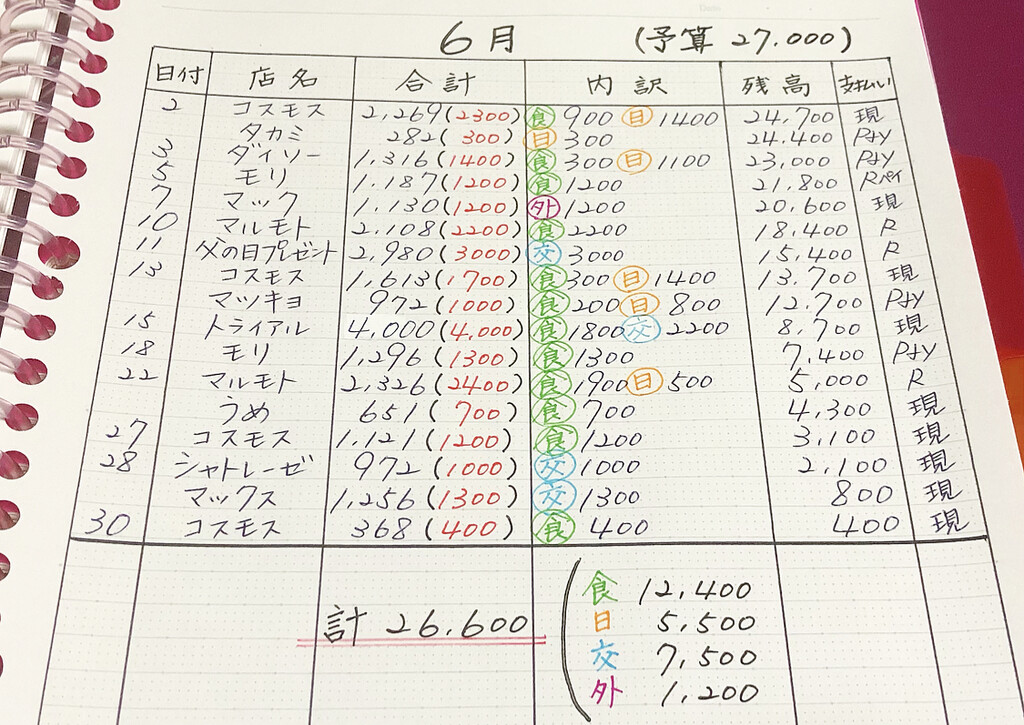 6月 (予算 27.000)
日付 店名 合計 内訳 残高 支払い
2 コスモス 2,269(2300) 食 900 日 1400 24,700 現
タカミ 282(300) 日 300 24,400 Pay
3 ダイソー 1,316(1400) 食 300 日 1100 23,000 Pay
5 モリ 1,187(1200) 食 1200 21,800 Rペイ
7 マック 1,130(1200) 外 1200 20,600 現
10 マルモト 2,108(2200) 食 2200 18,400 R
11 父の日プレゼント 2,980(3000) 交 3000 15,400 R
13 コスモス 1,613(1700) 食 300 日 1400 13,700 現
マツキヨ 972(1000) 食 200 日 800 12,700 Pay
15 トライアル 4,000(4,000) 食 1800 交 2200 8,700 現
18 モリ 1,296(1300) 食 1300 7,400 Pay
22 マルモト 2,326(2400) 食 1900 日 500 5,000 R
うめ 651(700) 食 700 4,300 現
27 コスモス 1,121(1200) 食 1200 3,100 現
28 シャトレーゼ 972(1000) 交 1000 2,100 現
マックス 1,256(1300) 交 1300 800 現
30 コスモス 368(400) 食 400 400 現
計 26,600
食 12,400
日 5,500
交 7,500
外 1,200